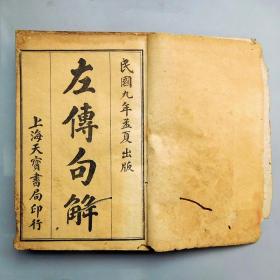 民國九年孟夏出版
左傳句解
上海天寶書局印行